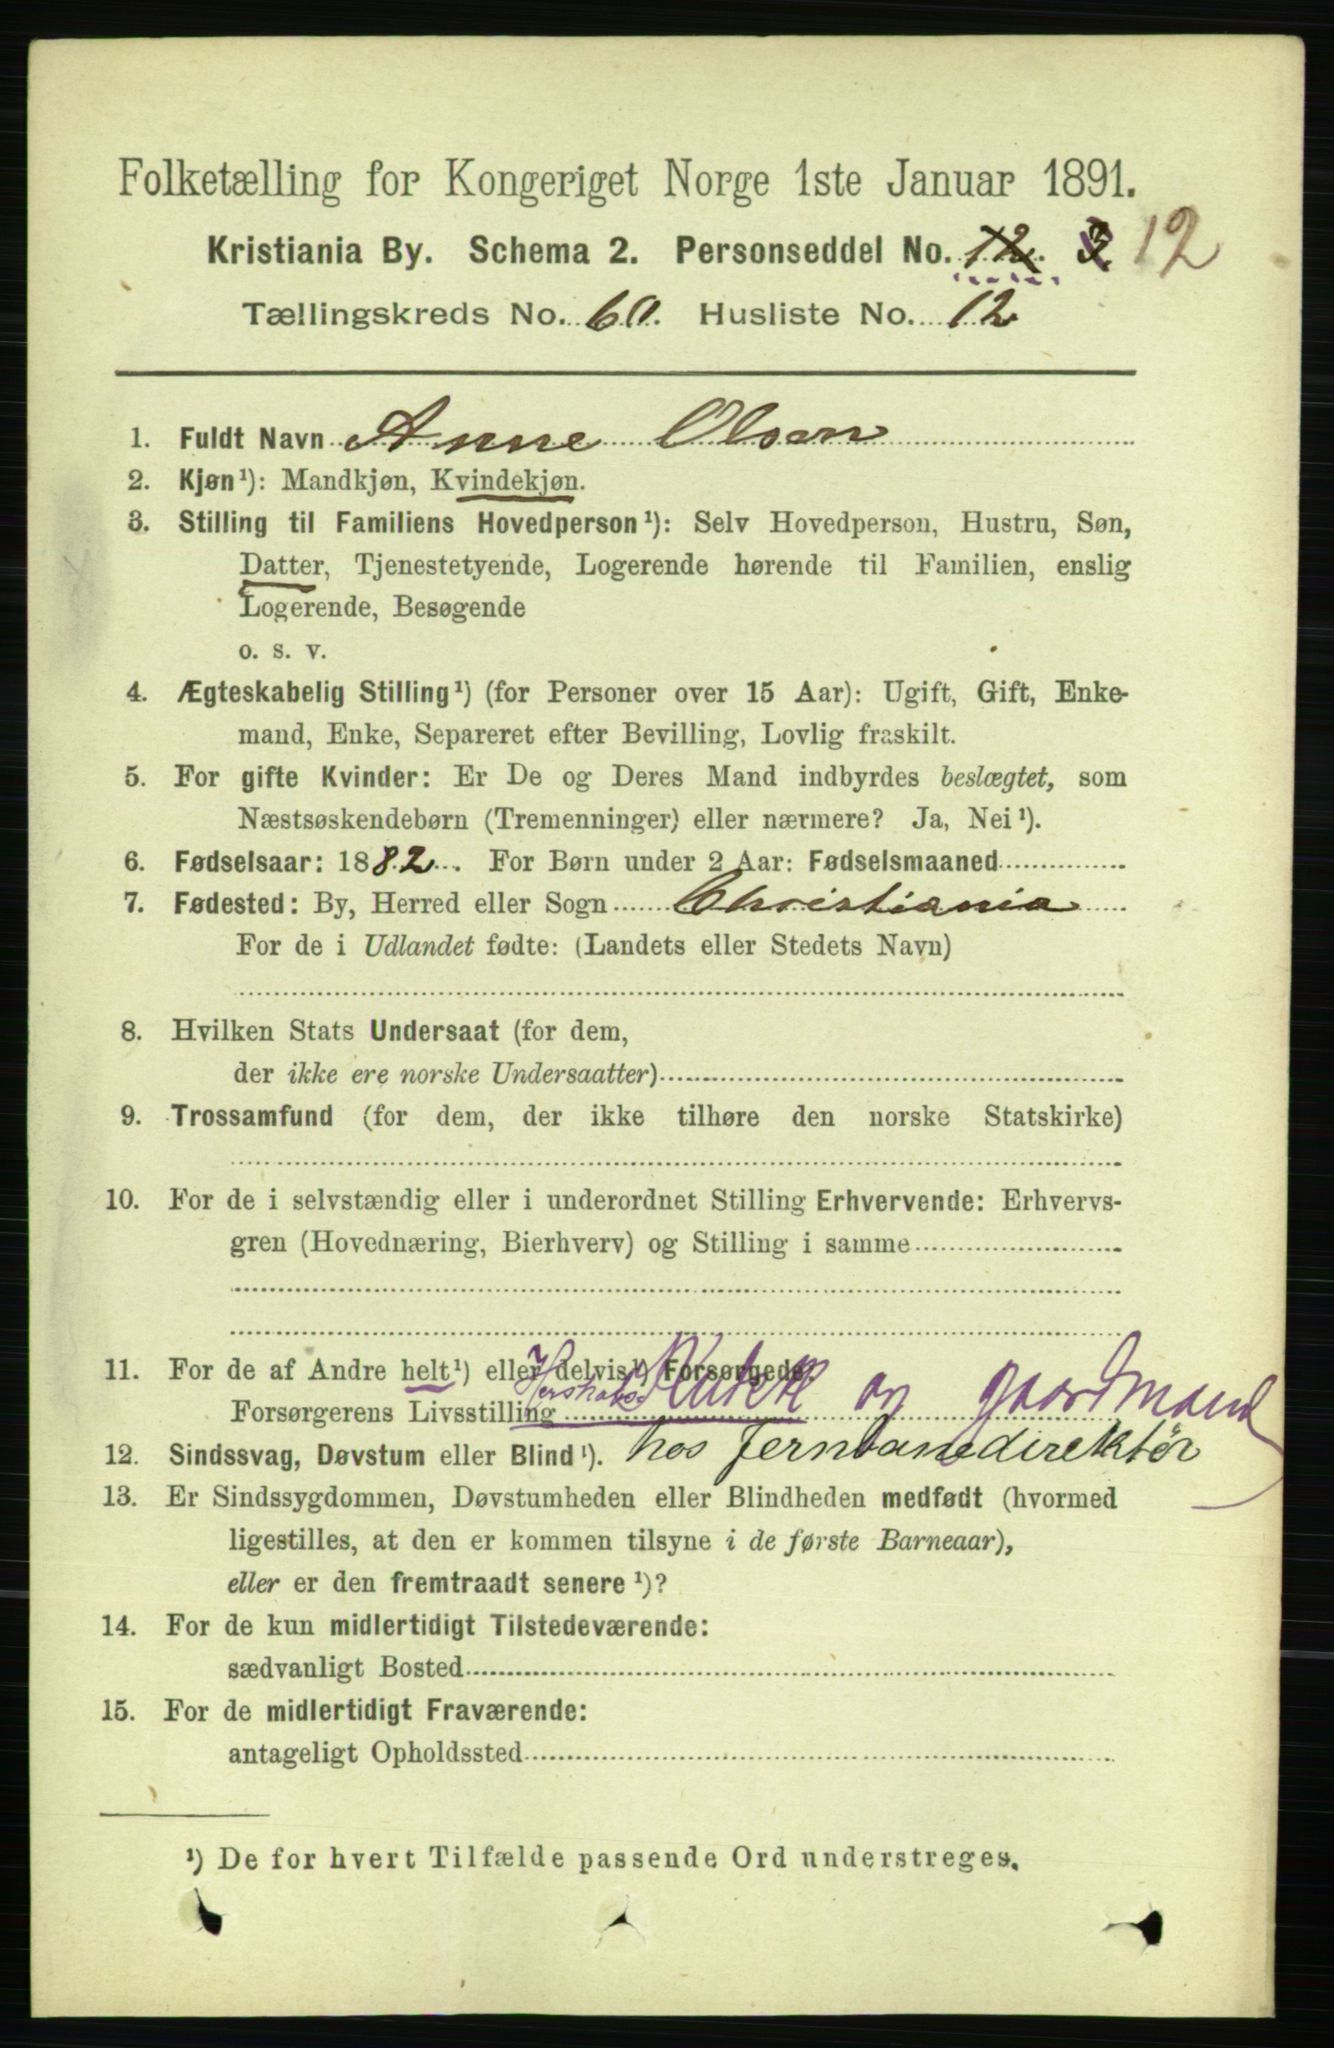 Folketælling for Kongeriget Norge 1ste Januar 1891.
Kristiania By. Schema 2. Personseddel No. 12. 3 12
Tællingskreds No. 60. Husliste No. 12
1. Fuldt Navn Anne Olsen
2. Kjøn¹): Mandkjøn, Kvindekjøn.
3. Stilling til Familiens Hovedperson¹): Selv Hovedperson, Hustru, Søn,
Datter, Tjenestetyende, Logerende hørende til Familien, enslig
Logerende, Besøgende
o. s. v.
4. Ægteskabelig Stilling¹) (for Personer over 15 Aar): Ugift, Gift, Enke-
mand, Enke, Separeret efter Bevilling, Lovlig fraskilt.
5. For gifte Kvinder: Er De og Deres Mand indbyrdes beslægtet, som
Næstsøskendebørn (Tremenninger) eller nærmere? Ja, Nei¹).
6. Fødselsaar: 1882. For Børn under 2 Aar: Fødselsmaaned
7. Fødested: By, Herred eller Sogn Christiania
For de i Udlandet fødte: (Landets eller Stedets Navn)
8. Hvilken Stats Undersaat (for dem,
der ikke ere norske Undersaatter)
9. Trossamfund (for dem, der ikke tilhøre den norske Statskirke)
10. For de i selvstændig eller i underordnet Stilling Erhvervende: Erhvervs-
gren (Hovednæring, Bierhverv) og Stilling i samme
11. For de af Andre helt¹) eller delvis¹) Forsørgede:
Forsørgerens Livsstilling og gaardmand
12. Sindssvag, Døvstum eller Blind¹). hos Jernbanedirektør
13. Er Sindssygdommen, Døvstumheden eller Blindheden medfødt (hvormed
ligestilles, at den er kommen tilsyne i de første Barneaar),
eller er den fremtraadt senere¹)?
14. For de kun midlertidigt Tilstedeværende:
sædvanligt Bosted
15. For de midlertidigt Fraværende:
antageligt Opholdssted
¹) De for hvert Tilfælde passende Ord understreges.